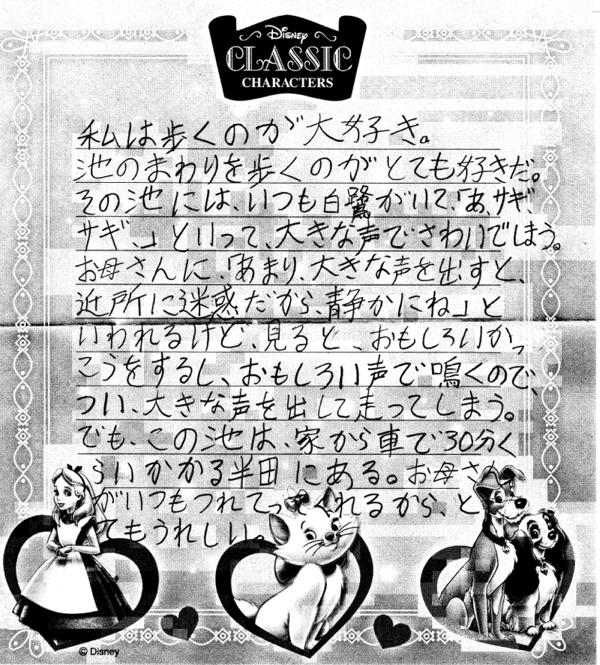 Disney
CLASSIC
CHARACTERS
私は歩くのが大好き。
池のまわりを歩くのがとても好きだ。
その池には、いつも白鷺がいて、「あ、サギ、
サギ、」といって、大きな声でさわいでしまう。
お母さんに、「あまり、大きな声を出すと、
近所に迷惑だから、静かにね」と
いわれるけど、見ると、おもしろいかっ
こうをするし、おもしろい声で鳴くので、
つい、大きな声を出して走ってしまう。
でも、この池は、家から車で30分く
らいかかる半田にある。お母さ
がいつもつれてっ れるから、と
てもうれしい。
© Disney